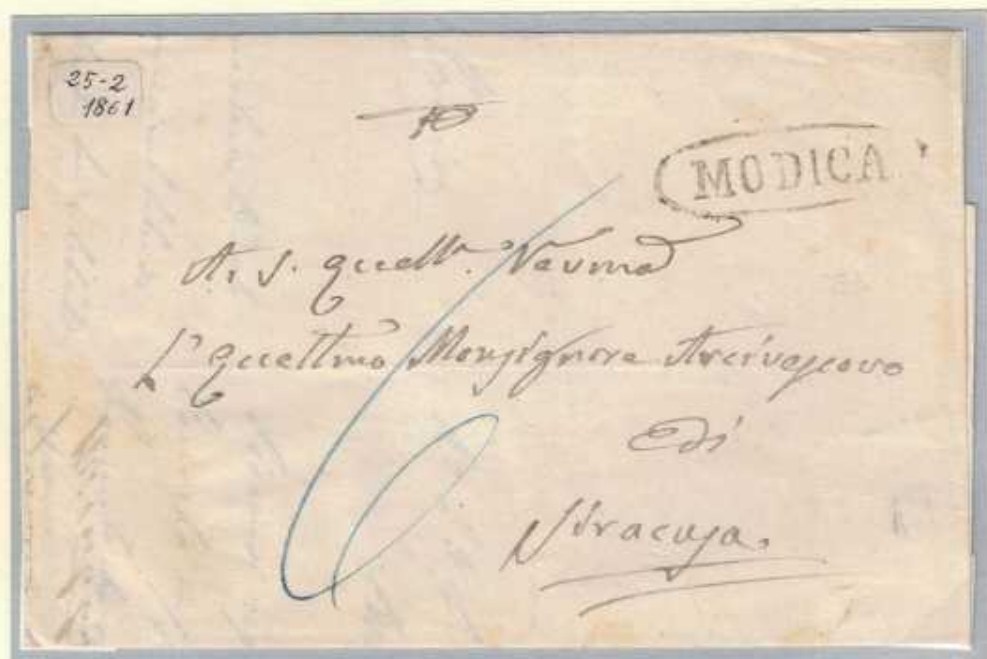 25-2
1861
MODICA
A. S. Eccell. Revma
L'Eccellmo Monsignore Arcivescovo
Di
Siracusa.
6